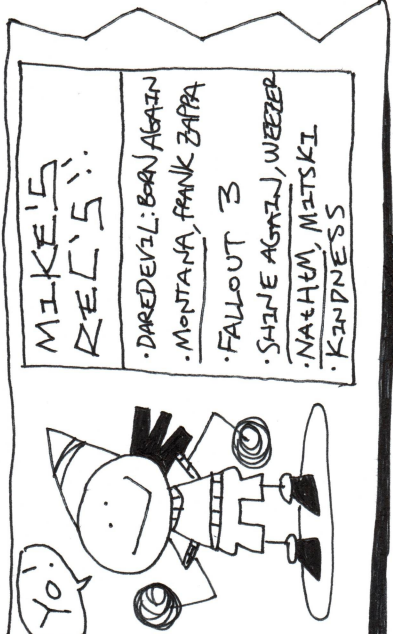 YO!
MIKE'S
REC'S:
· DAREDEVIL: BORN AGAIN
· MONTANA, FRANK ZAPPA
· FALLOUT 3
· SHINE AGAIN, WEEZER
· NAtHtM, MITSKI
· KINDNESS